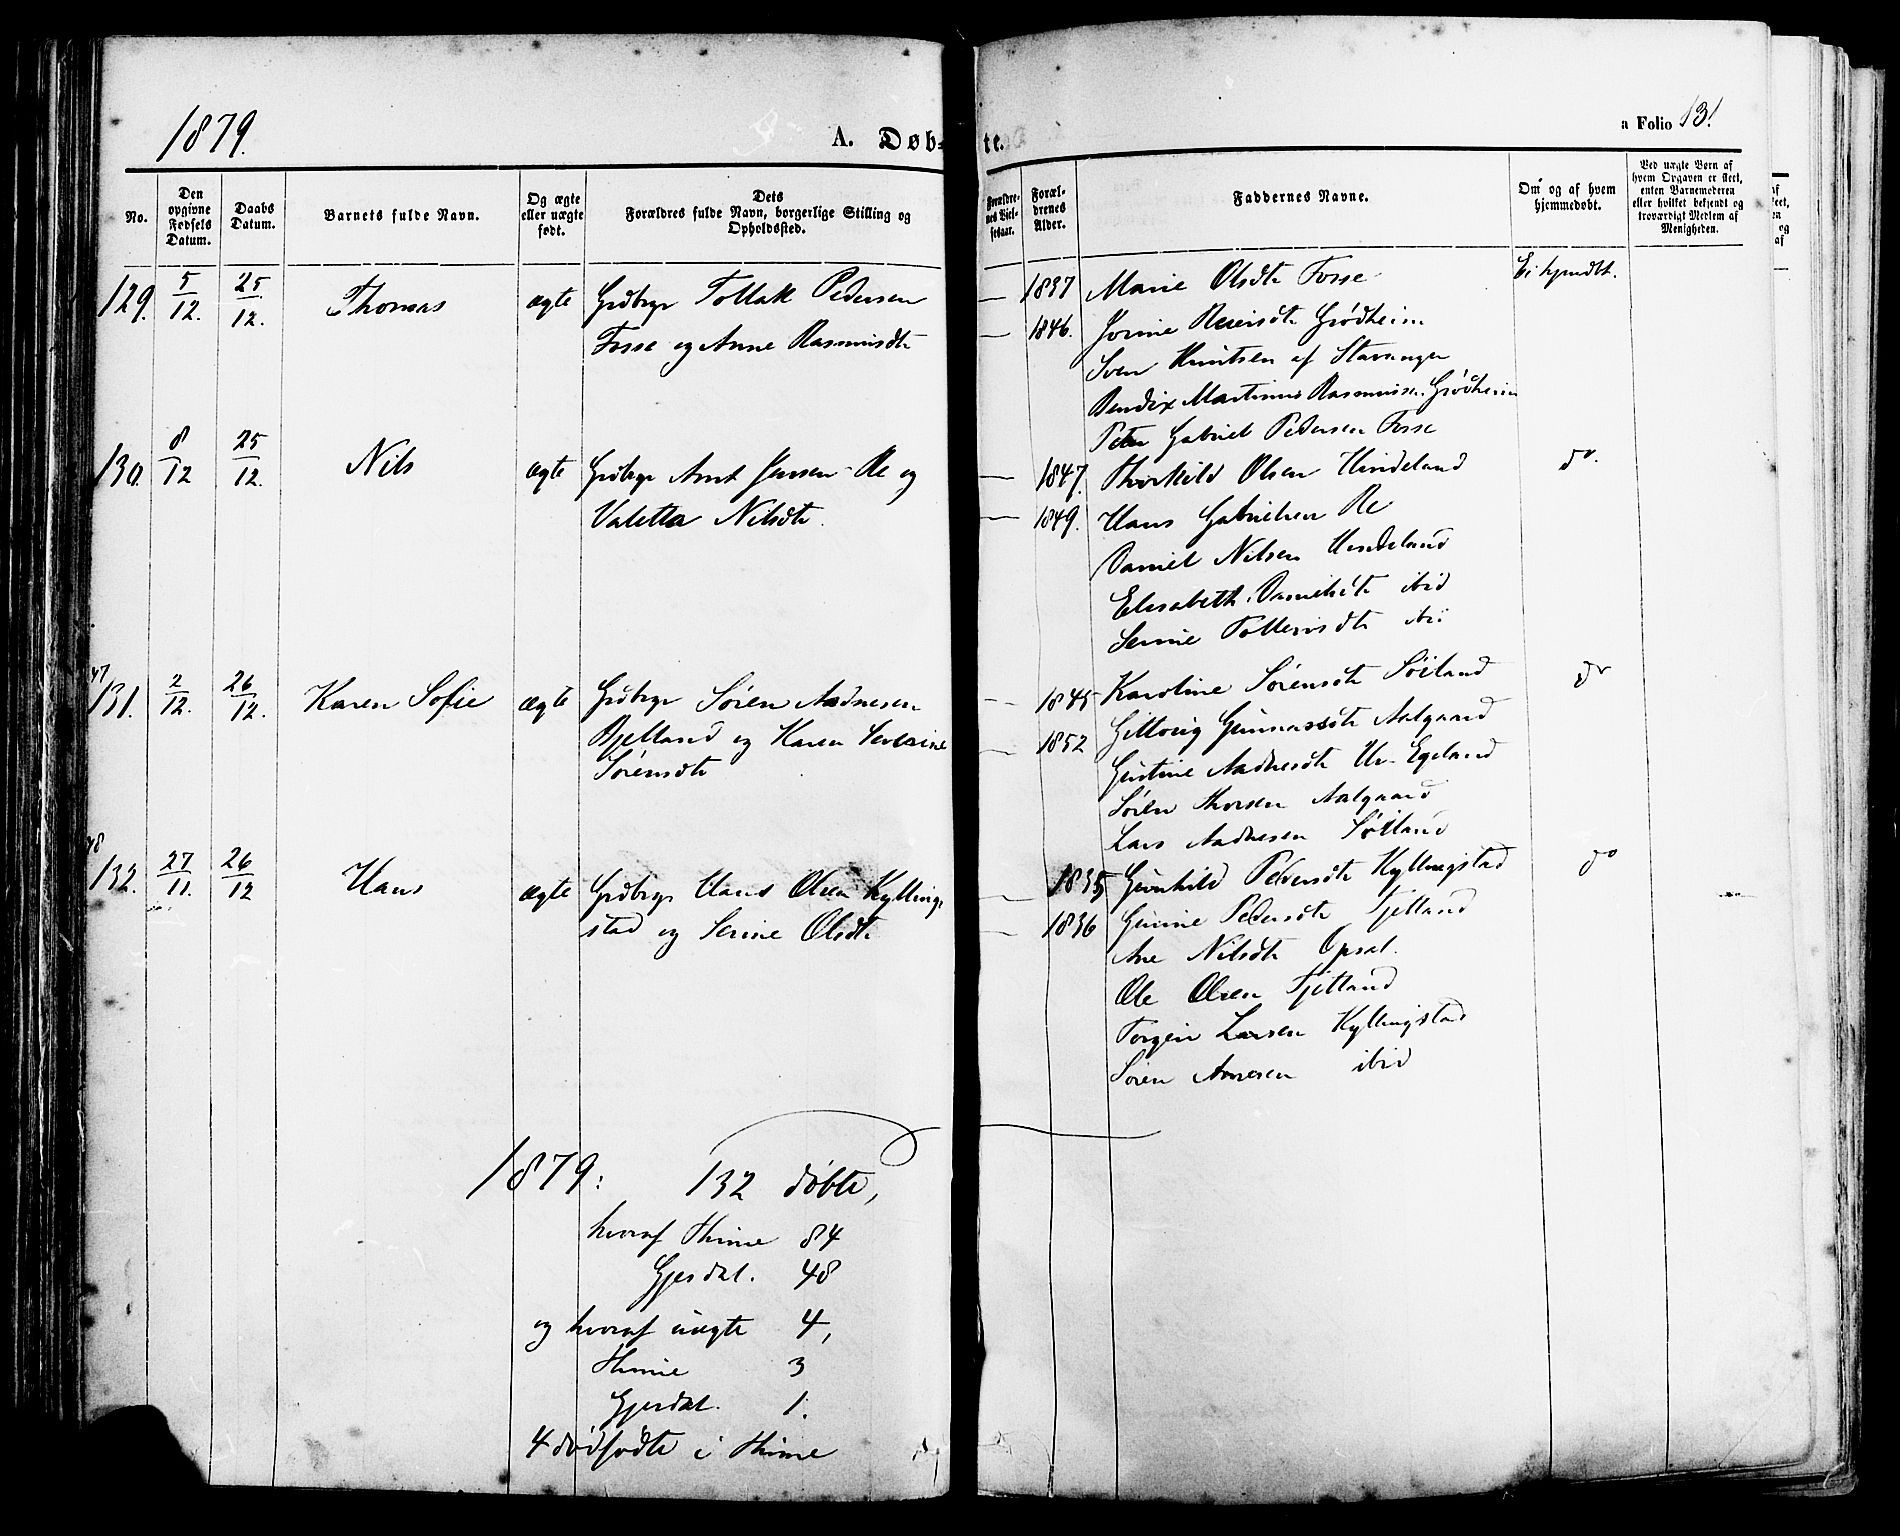 1879.
A. Døb-
te.
a Folio 131
No.
Den opgivne Fødsels Datum.
Daabs Datum.
Barnets fulde Navn.
Og ægte eller uægte født.
Dets Forældres fulde Navn, borgerlige Stilling og Opholdssted.
Forældrenes Vielsesaar.
Forældrenes Alder.
Faddernes Navne.
Om og af hvem hjemmedøbt.
Ved uægte Børn af hvem Opgaven er skeet, enten Barnemoderen eller hvilket bekjendt og troværdigt Medlem af Menigheden.
129. 5/12. 25/12. Thomas ægte Grdbrgr Tollak Pedersen
Fosse og Anne Rasmusdtr
— 1837 Marie Olsdtr Fosse Ei hjmdbt.
— 1846.
Sven Knutsen af Stavanger
Bendix Martinus Rasmussen Grødheim
Peter Gabriel Pedersen Fosse
130. 8/12 25/12. Nils ægte Grdbrgr Arnt Jensen Re og
Valetta Nilsdtr.
— 1847. Thorkild Olsen Undeland do.
— 1849. Hans Gabrielsen Re
Daniel Nilsen Undeland
Elisabeth Danielsdtr ibid
Serine Tollevsdtr ibid
47
131. 2/12. 26/12. Karen Sofie ægte Grdbrgr Søren Aadnesen
Bjelland og Karen Severine
Sørensdtr
— 1845 Karoline Sørensdtr Søiland do
— 1852 Gunnarsdtr Aalgaard
Gustine Aadnesdtr Ur. Egeland
Søren Thorsen Aalgaard
Lars Aadnesen Søiland
48
132. 27/11. 26/12 Hans ægte Grdbrgr Hans Olsen Kylling-
stad og Serine Olsdtr
— 1835 Gunhild Pedersdtr Kyllingstad do
— 1836 Gunine Pedersdtr Tjelland
Ane Nilsdtr Opsal.
Ole Olsen Tjelland
Torger Larsen Kyllingstad
Søren Arnesen ibid
1879: 132 døbte,
hvoraf Thime 84
Gjesdal. 48
og hvoraf uægte 4,
Thime 3
Gjesdal. 1.
4 dødfødte i Thime